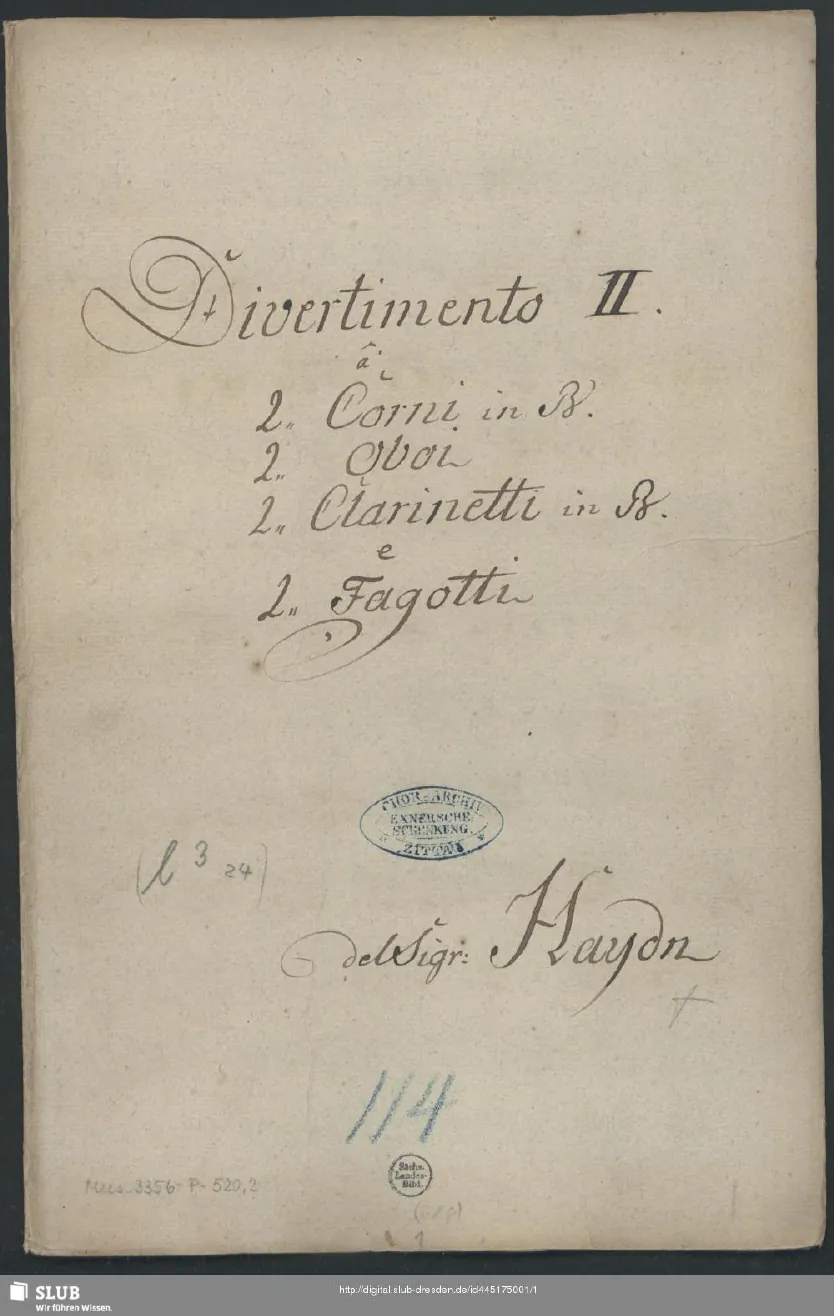 Divertimento II.
â
2„ Corni in B.
2„ Oboi
2„ Clarinetti in B.
e
2„ Fagotti
CHOR-ARCHIV
EXNERSCHE
SCHENKUNG
ZITTAU
(l 3 24)
del Sigr: Haydn
114
Sächs.
Landes-
Bibl.
Mus. 3356-P-520,2
1
SLUB
Wir führen Wissen.
http://digital.slub-dresden.de/id445175001/1